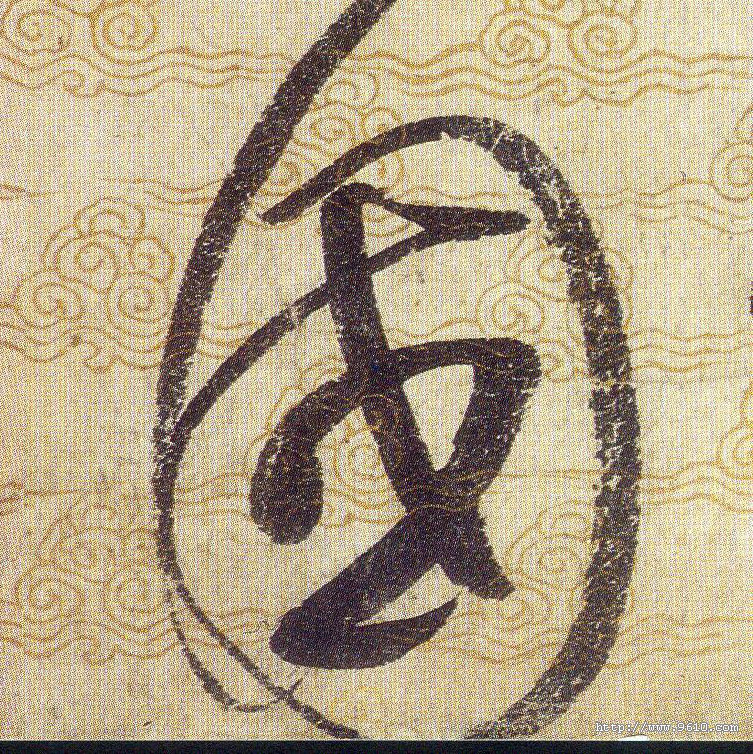 國
http://www.9610.com